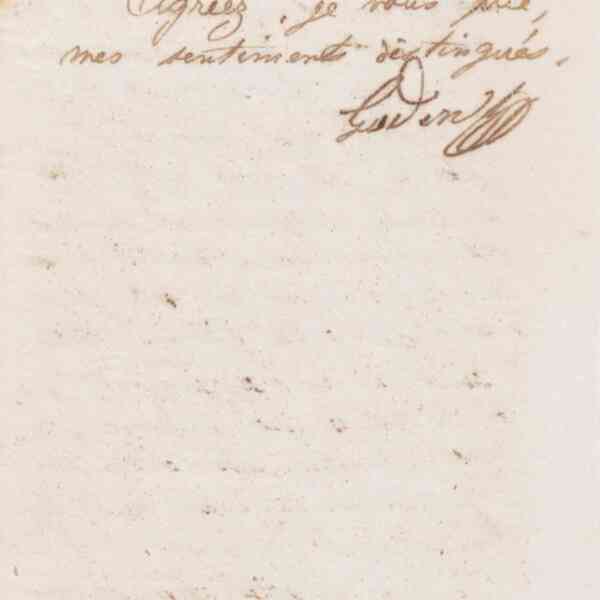 Agréez, je vous prie,
mes sentiments distingués.
Godin